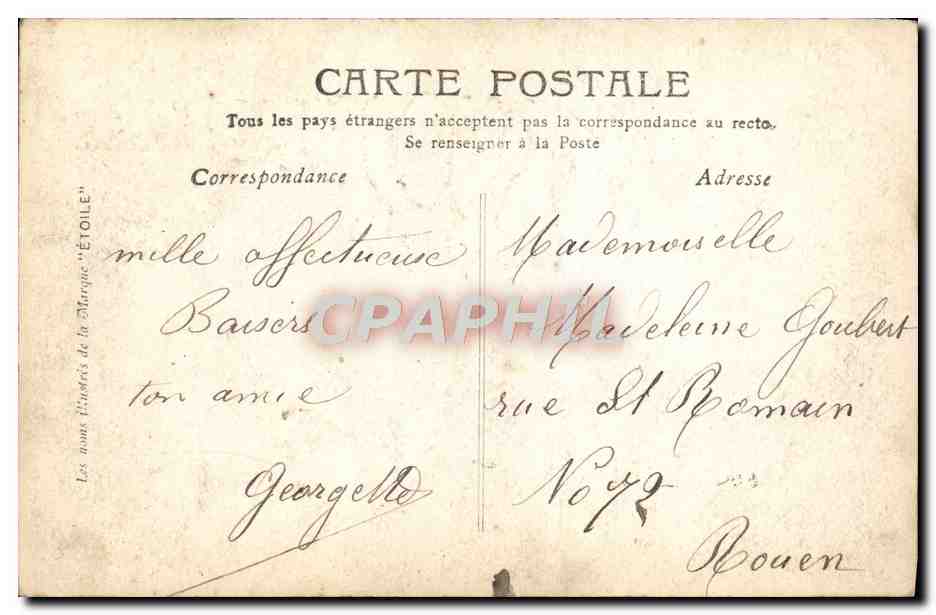 CARTE POSTALE
Tous les pays étrangers n'acceptent pas la correspondance au recto,
Se renseigner à la Poste
Correspondance
Adresse
Les noms illustrés de la Marque "ÉTOILE"
mille affectueuse
Baisers
ton amie
Georgette
Mademoiselle
Madeleine Goubert
rue St Romain
No 72
Rouen
CPAPHIL